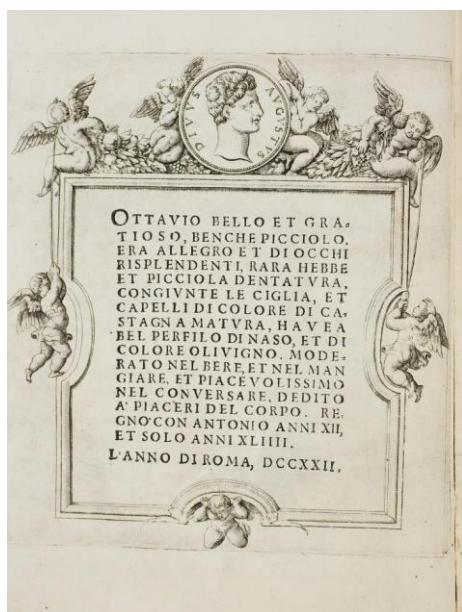 DIVVS AVGVSTVS
OTTAVIO BELLO ET GRA-
TIOSO, BENCHE PICCIOLO.
ERA ALLEGRO ET DI OCCHI
RISPLENDENTI, RARA HEBBE
ET PICCIOLA DENTATVRA,
CONGIVNTE LE CIGLIA, ET
CAPELLI DI COLORE DI CA-
STAGNA MATVRA, HAVEA
BEL PERFILO DI NASO, ET DI
COLORE OLIVIGNO. MODE-
RATO NEL BERE, ET NEL MAN
GIARE, ET PIACEVOLISSIMO
NEL CONVERSARE, DEDITO
A' PIACERI DEL CORPO. RE-
GNO' CON ANTONIO ANNI XII,
ET SOLO ANNI XLIIII.
L'ANNO DI ROMA, DCCXXII.